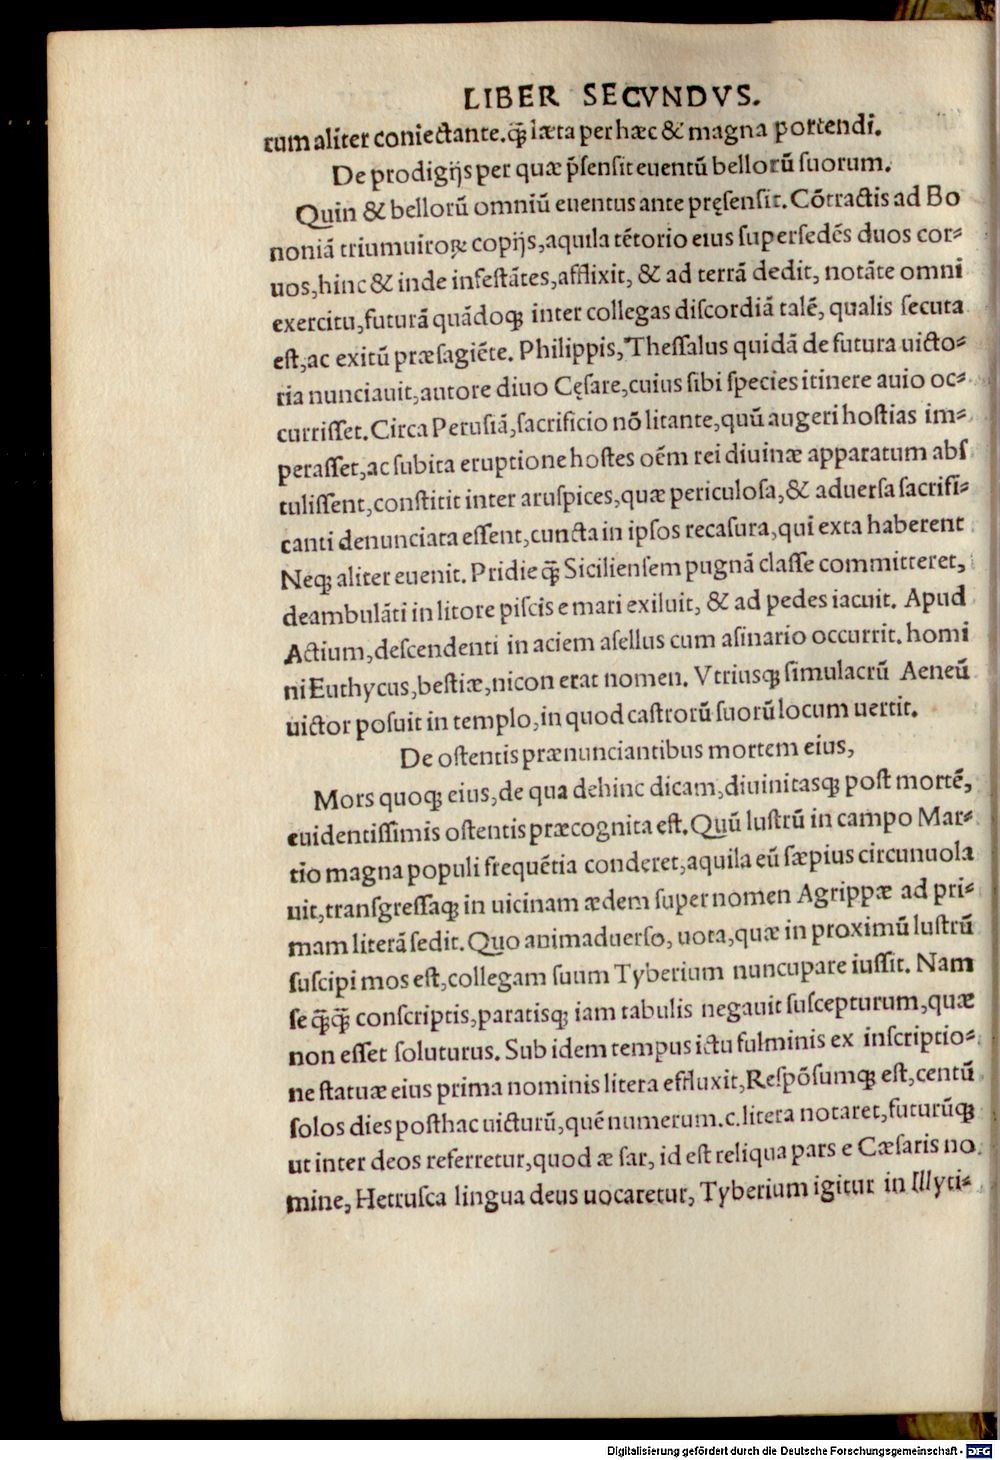 LIBER SECVNDVS.
rum aliter coniectante.q̃ læta per hæc & magna portendi.
De prodigijs per quæ p̃sensit euentũ bellorũ suorum.
Quin & bellorũ omniũ euentus ante pręsensit. Cõtractis ad Bo
noniã triumuiroꝝ copijs, aquila tẽtorio eius supersedẽs duos cor-
uos, hinc & inde infestãtes, afflixit, & ad terrã dedit, notãte omni
exercitu, futurã quãdoq; inter collegas discordiã talẽ, qualis secuta
est, ac exitũ præsagiẽte. Philippis, Thessalus quidã de futura uicto-
ria nunciauit, autore diuo Cęsare, cuius sibi species itinere auio oc-
currisset. Circa Perusiã, sacrificio nõ litante, quũ augeri hostias im-
perasset, ac subita eruptione hostes oẽm rei diuinæ apparatum abs
tulissent, constitit inter aruspices, quæ periculosa, & aduersa sacrifi-
canti denunciata essent, cuncta in ipsos recasura, qui exta haberent
Neq; aliter euenit. Pridie q̃ Siciliensem pugnã classe committeret,
deambulãti in litore piscis e mari exiluit, & ad pedes iacuit. Apud
Actium, descendenti in aciem asellus cum asinario occurrit. homi
ni Euthycus, bestiæ, nicon erat nomen. Vtriusq; simulacrũ Aeneũ
uictor posuit in templo, in quod castrorũ suorũ locum uertit.
De ostentis prænunciantibus mortem eius,
Mors quoq; eius, de qua dehinc dicam, diuinitasq; post mortẽ,
euidentissimis ostentis præcognita est. Quũ lustrũ in campo Mar-
tio magna populi frequẽtia conderet, aquila eũ sæpius circunuola
uit, transgressaq; in uicinam ædem super nomen Agrippæ ad pri-
mam literã sedit. Quo animaduerso, uota, quæ in proximũ lustrũ
suscipi mos est, collegam suum Tyberium nuncupare iussit. Nam
se q̃q̃ conscriptis, paratisq; iam tabulis negauit suscepturum, quæ
non esset soluturus. Sub idem tempus ictu fulminis ex inscriptio-
ne statuæ eius prima nominis litera effluxit, Respõsumq; est, centũ
solos dies posthac uicturũ, quẽ numerum .c. litera notaret, futurũq;
ut inter deos referretur, quod æ sar, id est reliqua pars e Cæsaris no
mine, Hetrusca lingua deus uocaretur, Tyberium igitur in Illyri-
Digitalisierung gefördert durch die Deutsche Forschungsgemeinschaft - DFG